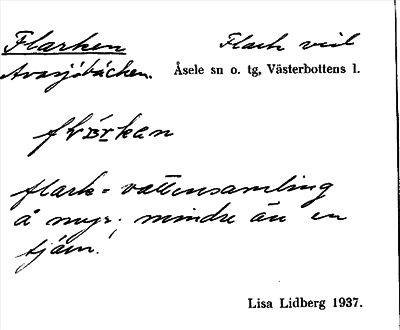 Flarken Flark vid
Avasjöbäcken. Åsele sn o. tg, Västerbottens l.
flark = vattensamling
å myr; mindre än en
tjärn.
Lisa Lidberg 1937.